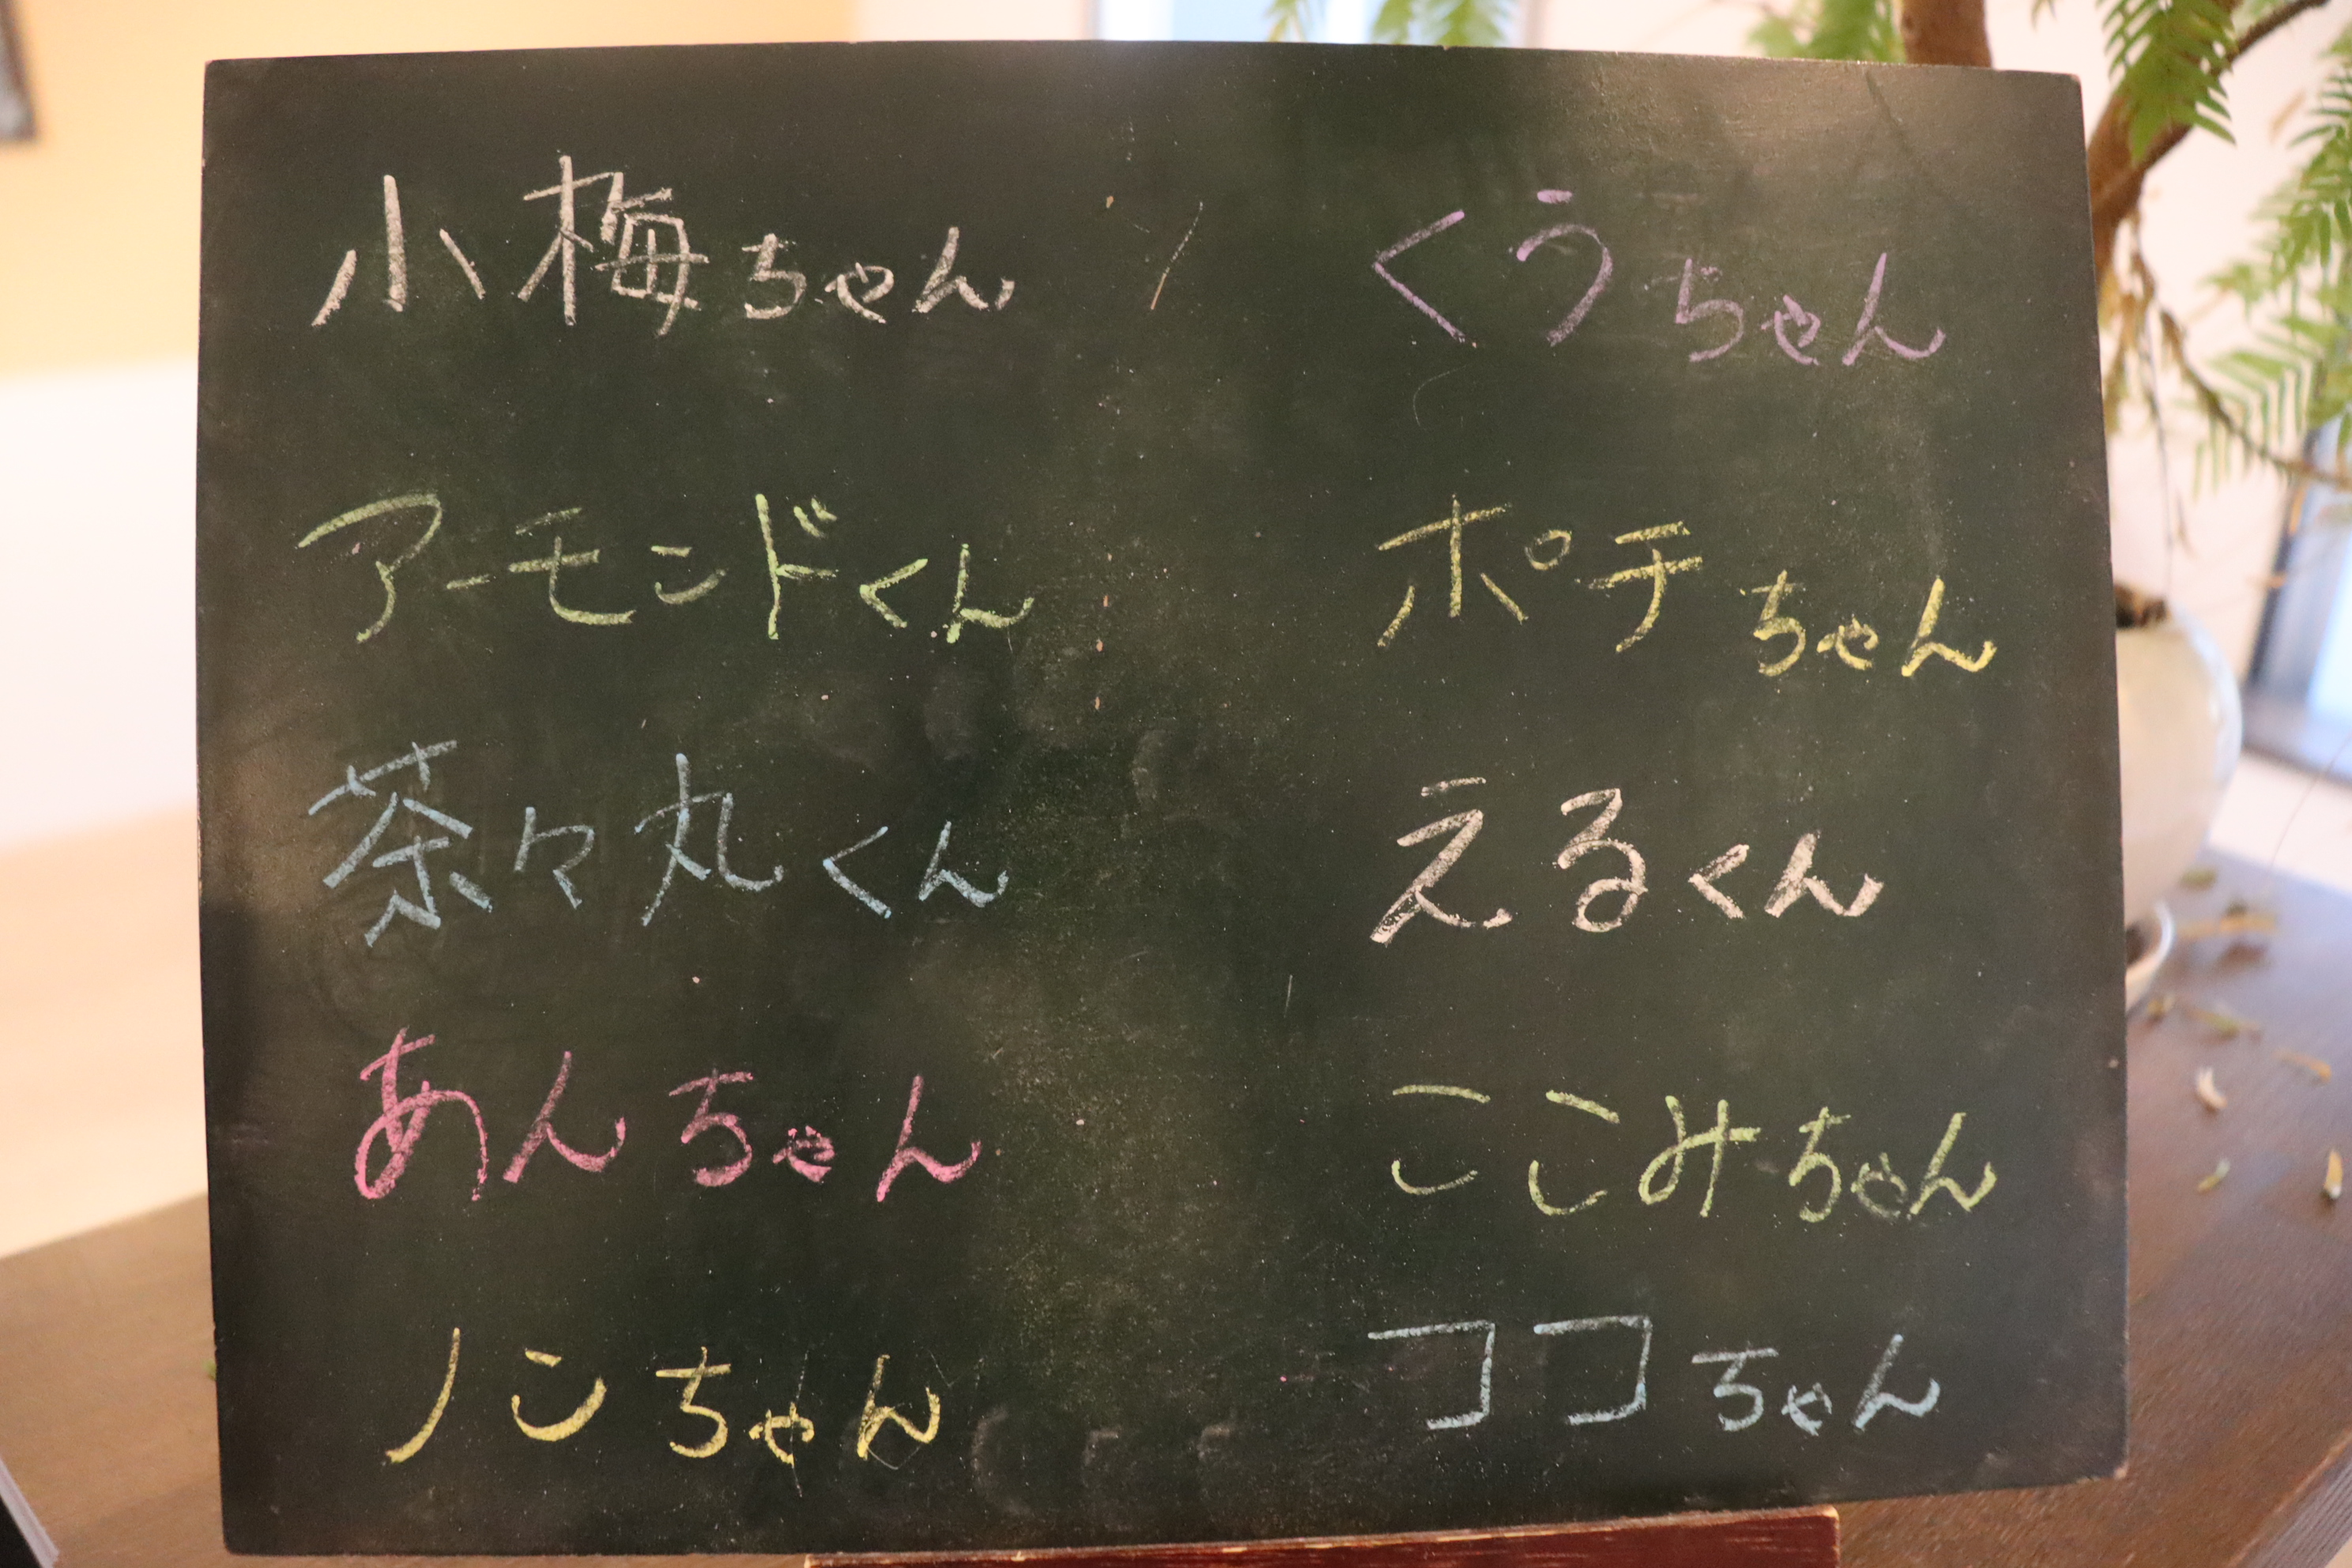 小梅ちゃん
アーモンドくん
茶々丸くん
あんちゃん
ノンちゃん
くうちゃん
ポチちゃん
えるくん
ここみちゃん
ココちゃん